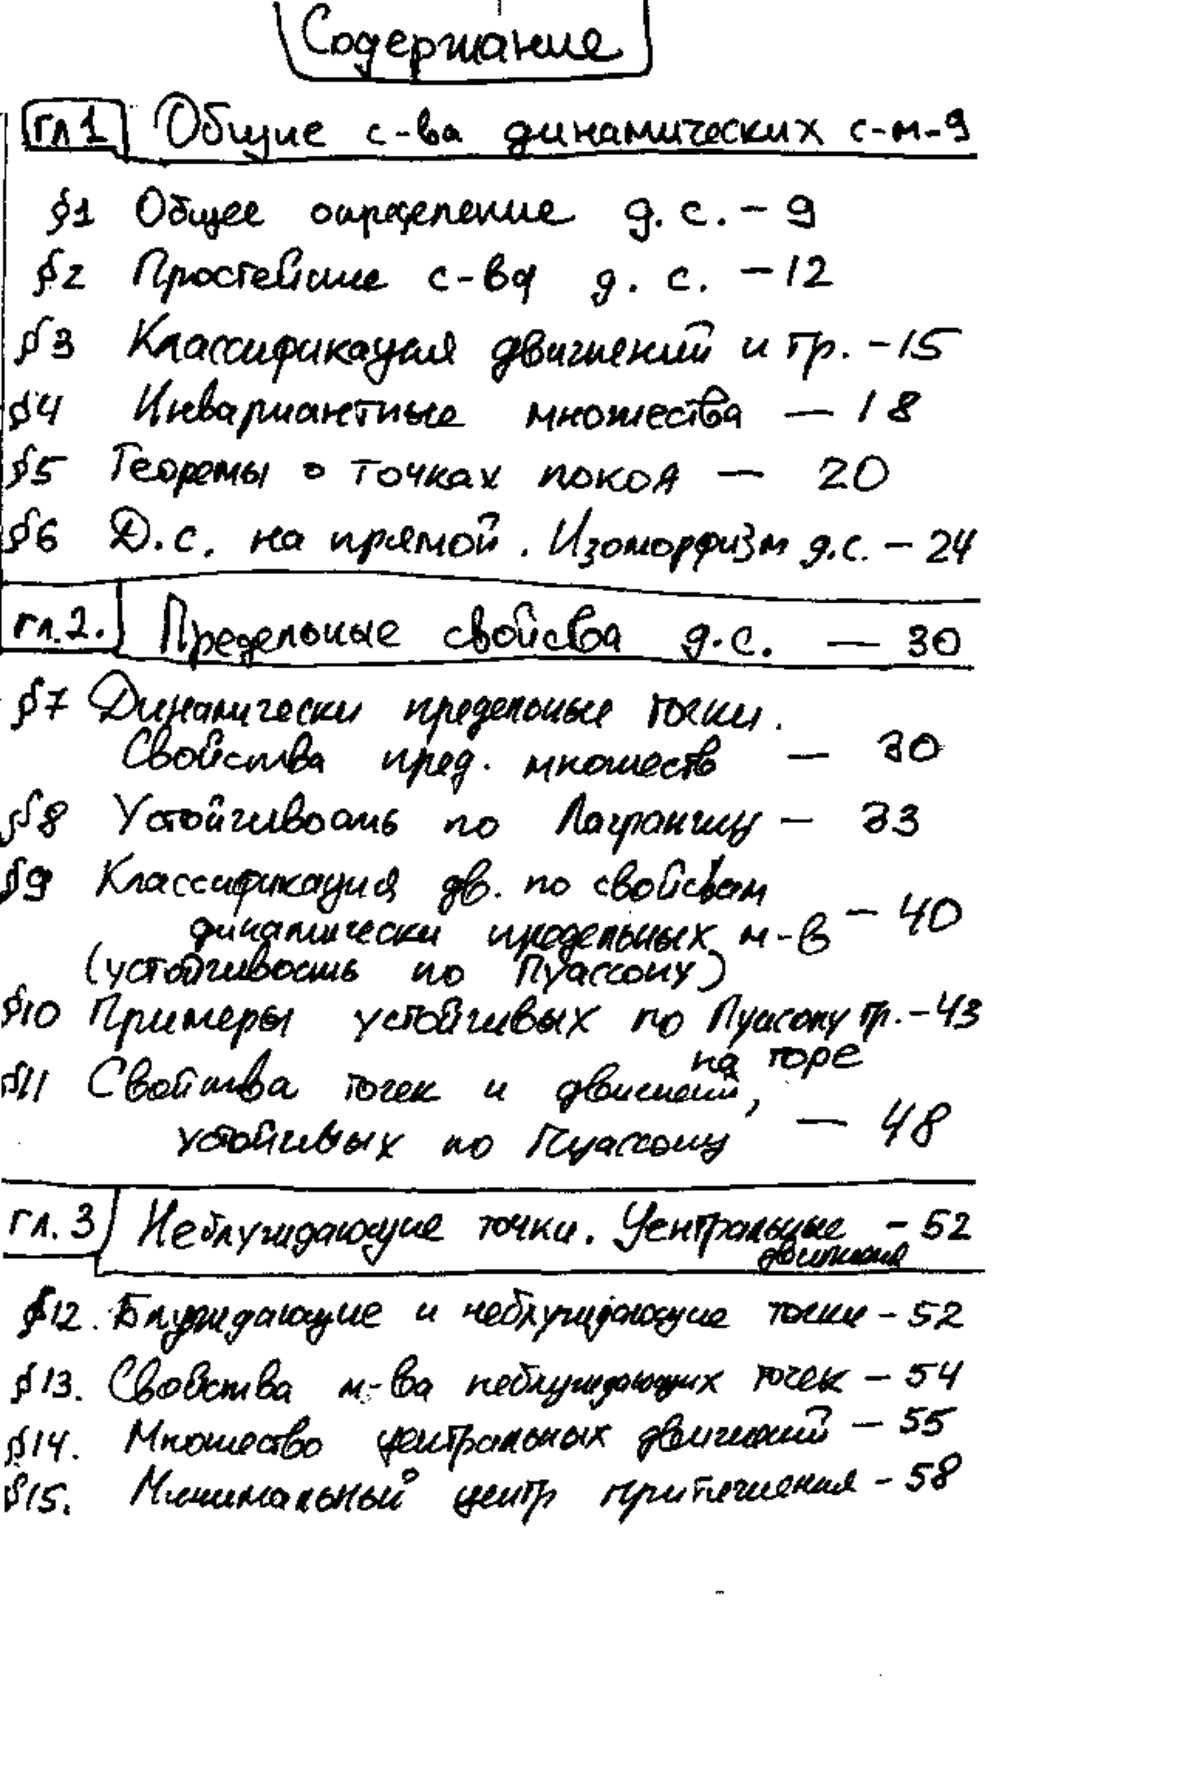 Содержание
гл 1 Общие с-ва динамических с-м - 9
§1 Общее определение д.с. - 9
§2 Простейшие с-ва д.с. - 12
§3 Классификация движений и тр. - 15
§4 Инвариантные множества — 18
§5 Теоремы о точках покоя — 20
§6 Д.с. на прямой. Изоморфизм д.с. - 24
гл.2. Предельные свойства д.с. — 30
§7 Динамически предельные точки.
Свойства пред. множеств — 30
§8 Устойчивость по Лагранжу — 33
§9 Классификация дв. по свойствам
динамически предельных м-в - 40
(устойчивость по Пуассону)
§10 Примеры устойчивых по Пуасону тр. - 43
на торе
§11 Свойства точек и движений,
устойчивых по Пуассону — 48
гл. 3 Неблуждающие точки. Центральные - 52
движения
§12. Блуждающие и неблуждающие точки - 52
§13. Свойства м-ва неблуждающих точек - 54
§14. Множество центральных движений - 55
§15. Минимальный центр притяжения - 58